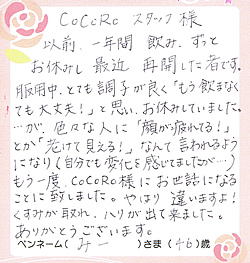 CoCoRo スタッフ 様
以前、一年間 飲み、ずっと
お休みし 最近 再開した者です。
服用中、とても調子が良く「もう飲まなく
ても大丈夫!」と思い、お休みしていました。
…が、色々な人に「顔が疲れてる!」
とか「老けて見える!」なんて言われるよう
になり(自分でも変化を感じてましたが…)
もう一度、CoCoRo様にお世話になる
ことに致しました。やはり 違いますよ!
くすみが取れ、ハリが出て来ました。
ありがとうございます。
ペンネーム( みー )さま (46)歳